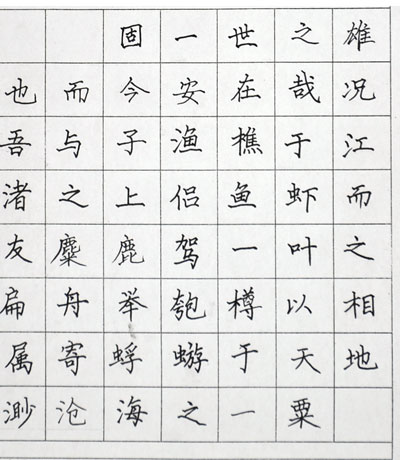 固一世之雄
也而今安在哉况
吾与子渔樵于江
渚之上侣鱼虾而
友麋鹿驾一叶之
扁舟举匏樽以相
属寄蜉蝣于天地
渺沧海之一粟